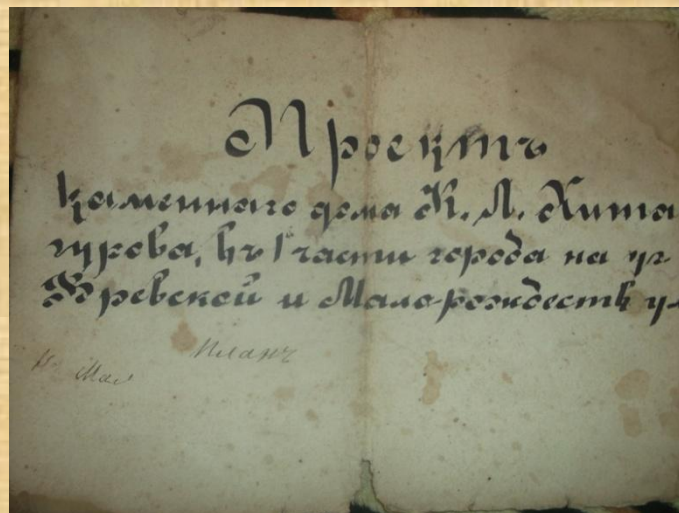 Проектъ
каменнаго дома К. Л. Хита
гурова, въ 1 части города на уг
Вревской и Малорождеств ул
Планъ